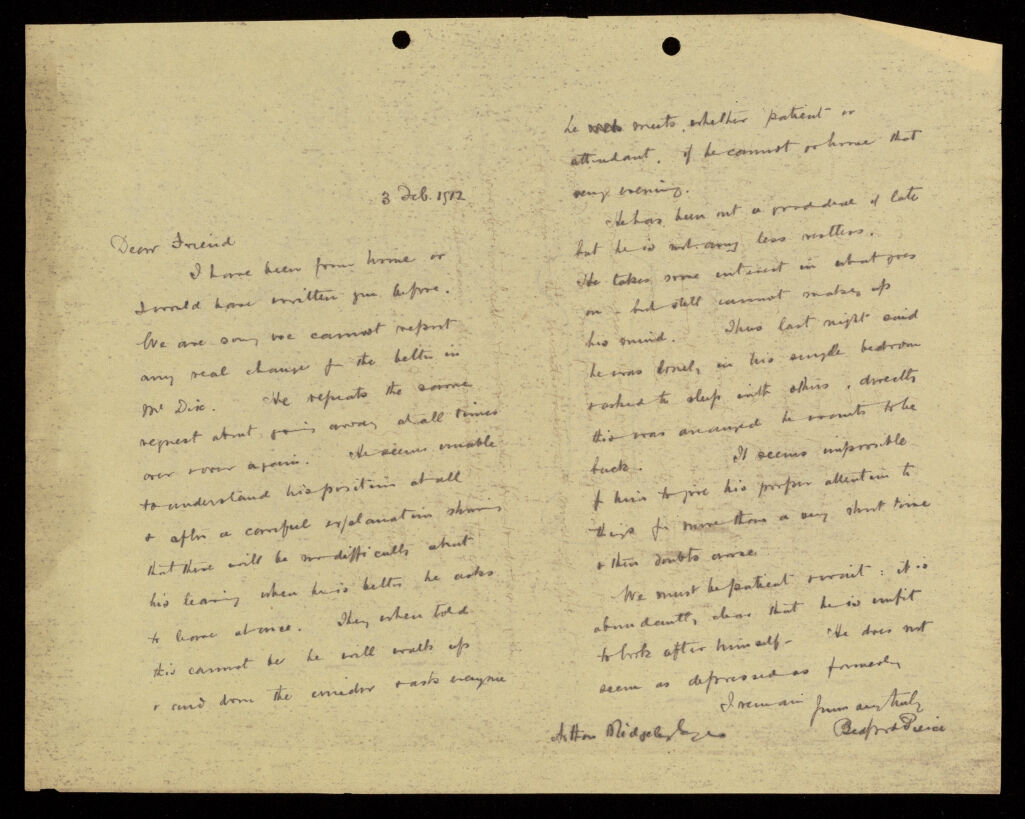 3 Feb. 1912
Dear Friend
I have been from home or
I would have written you before.
We are sorry we cannot report
any real change for the better in
Mr Dix. He repeats the same
request about going away at all times
over & over again. He seems unable
to understand his position at all
& after a careful explanation showing
that there will be no difficulty about
his leaving when he is better he asks
to leave at once. Then when told
this cannot be he will walk up
& and down the corridor & ask everyone
he meets, whether patient or
attendant, if he cannot go home that
very evening.
He has been out a good deal of late
but he is not any less restless.
He takes some interest in what goes
on - but still cannot make up
his mind. Thus last night said
he was lonely in his single bedroom
& asked to sleep with others, directly
this was arranged he wants to be
back. It seems impossible
for him to give his proper attention to
things for more than a very short time
& then doubts arise.
We must be patient & wait: it is
abundantly clear that he is unfit
to look after himself - He does not
seem as depressed as formerly
I remain yours very truly
Bedford Pierce
Arthur Midgley